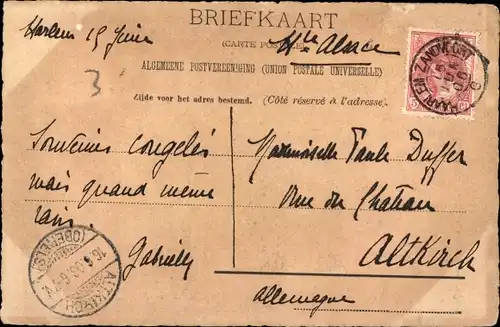 BRIEFKAART
Harlem 15 Juin
(CARTE POSTALE)
Hte Alsace
ALGEMEENE POSTVEREENIGING (UNION POSTALE UNIVERSELLE)
3
Zijde voor het adres bestemd. (Côté réservé à l'adresse).
HAARLEM ZANDVOORT
Souvenirs congelés
mais quand même
Mademoiselle Paule Duffer
Rue du Chateau
Gabrielle
Altkirch
Allemagne
ALTKIRCH
(OBERELS)